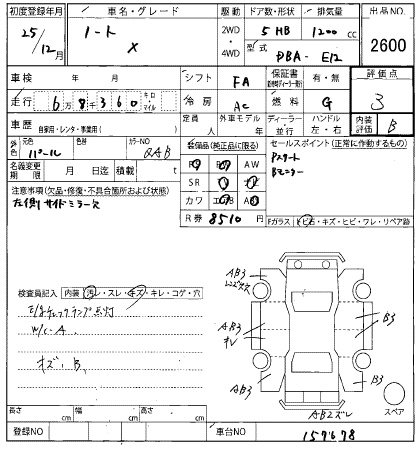 初度登録年月 車名・グレード 駆動 ドア数・形状 排気量 出品NO.
25/12月 ノート X 2WD・4WD 5 HB 1200 cc 2600
型式 DBA- E12
車検 年 月 シフト FA 保証書 有・無 評価点
走行 6万8千360 キロ マイル 冷房 AC 燃料 G 3
車歴 自家用・レンタ・事業用( ) 定員 人 外車モデル 年 ディーラー・並行 ハンドル 左・右 内装評価 B
外色 元色 パール カラーNO QAB 装備品(純正品に限る) セールスポイント(正常に作動するもの)
名義変更期限 月 日迄 積載 t AW Pスタート
注意事項(欠品・修復・不具合箇所および状態) SR Bモニター
左側サイドミラー欠 カワ
R券 8510 円 Fガラス トビ石・キズ・ヒビ・ワレ・リペア跡
検査員記入 内装 汚レ・スレ・キズ・キレ・コゲ・穴
E/gチェックランプ点灯
W/C-A
キズ、B、
AB3
AB3
AB3
B3
B3
AB2ズレ
スペア
長さ cm 幅 cm 高さ cm
登録NO 車台NO 157678